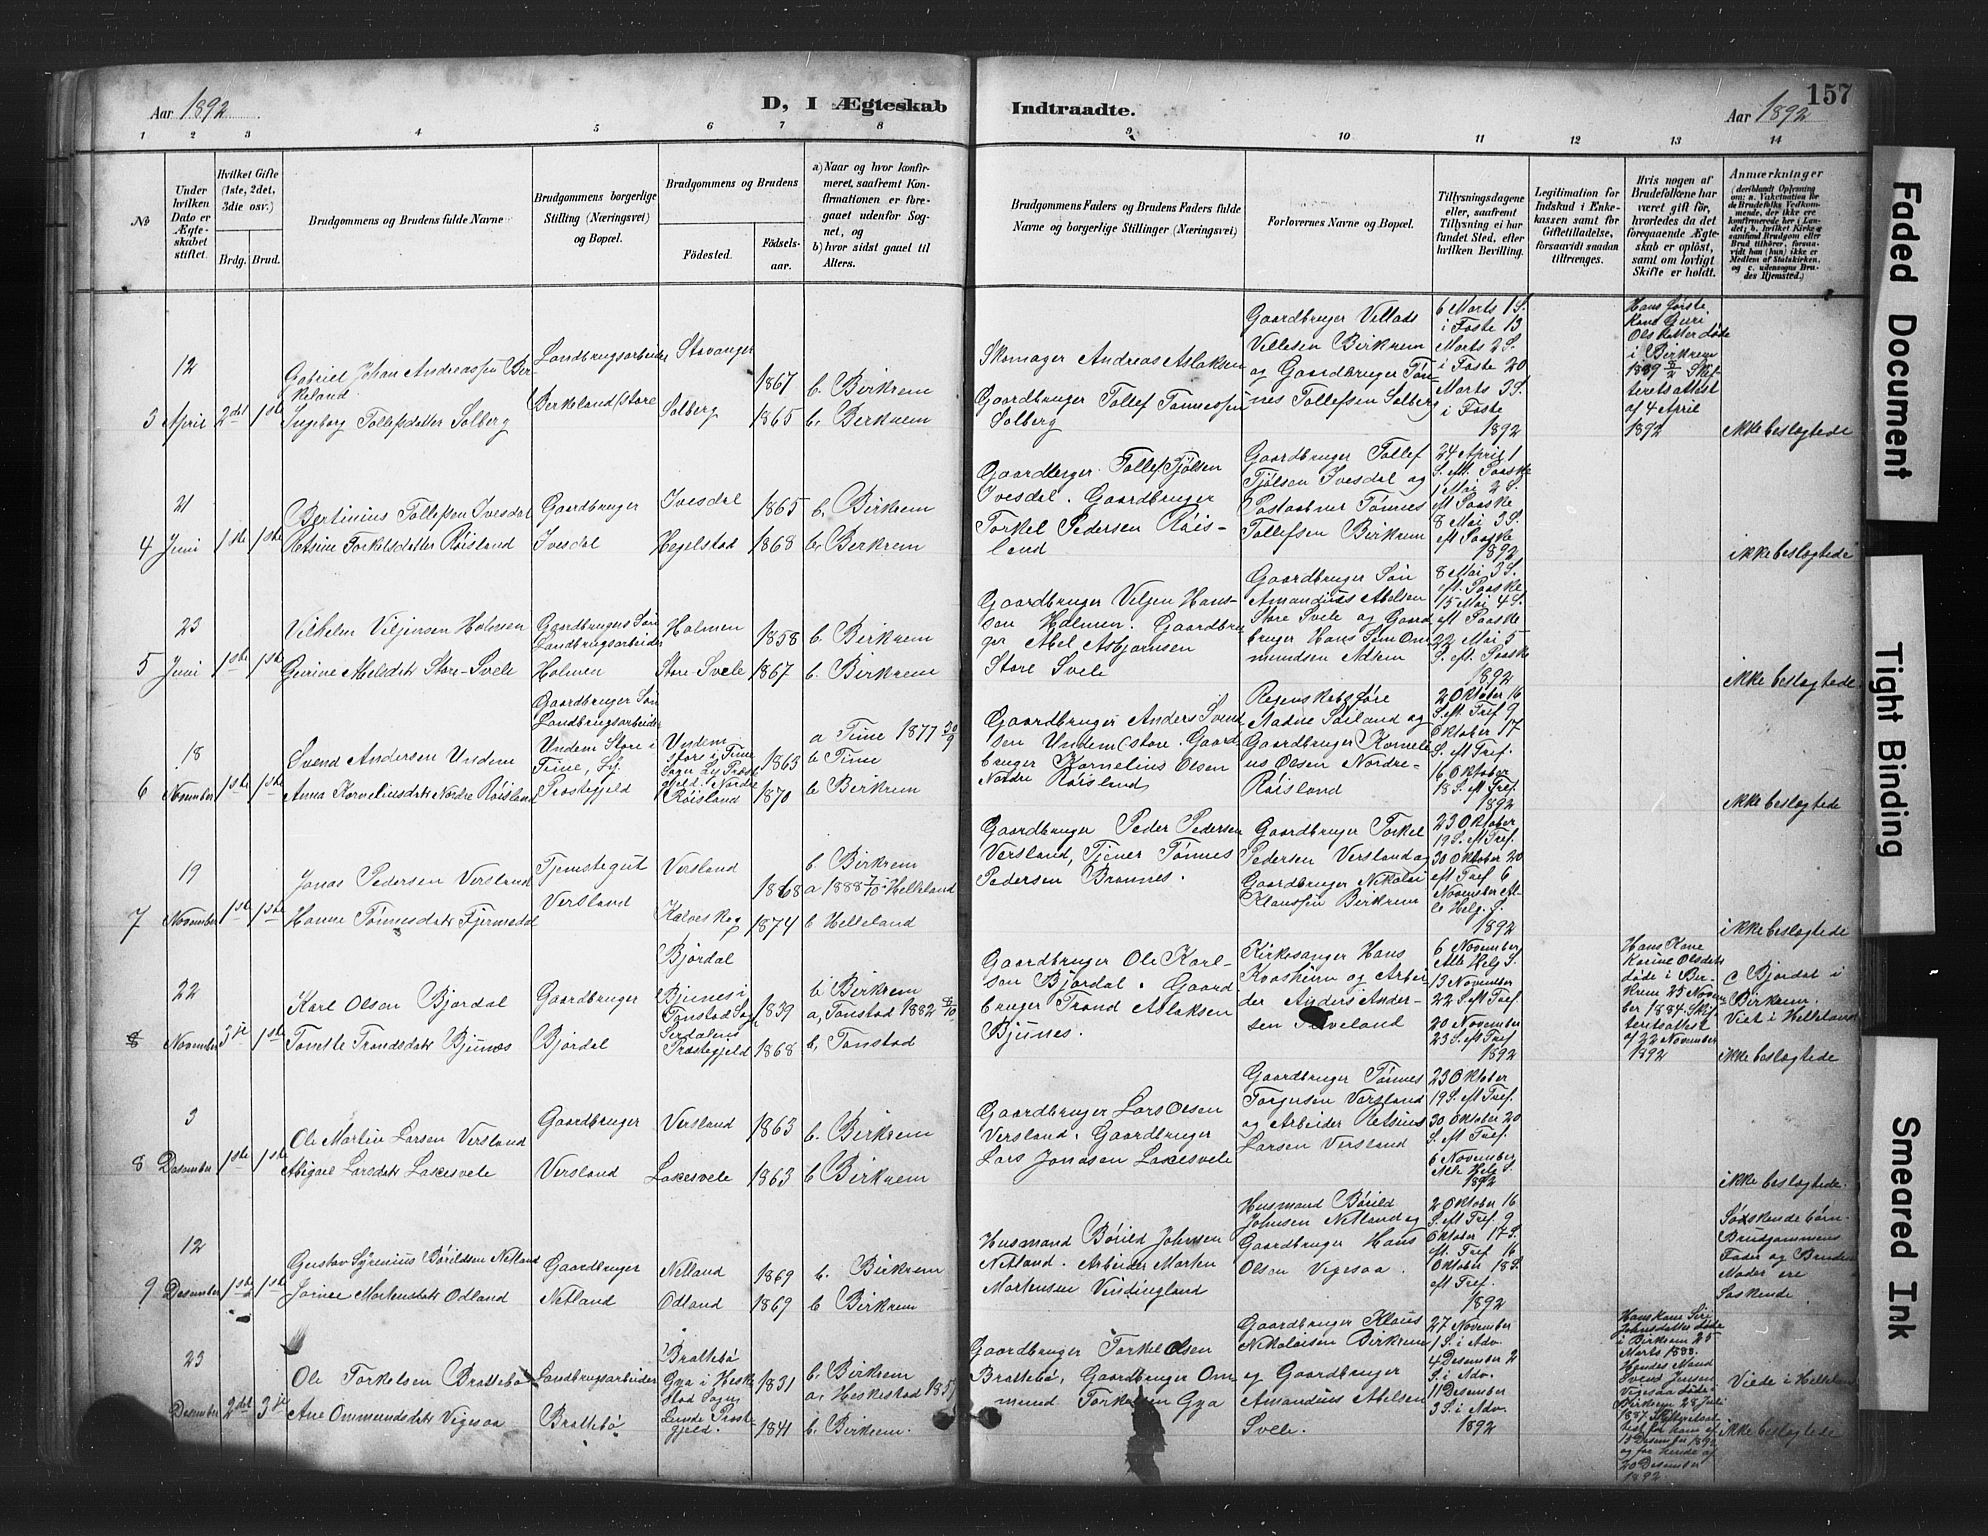 Aar 1892
D, I Ægteskab
Indtraadte.
157
Aar 1892
1 2 3 4 5 6 7 8 9 10 11 12 13 14
No
Under hvilken Dato er Ægteskabet stiftet.
Hvilket Gifte (1ste, 2det, 3die osv.)
Brdg. Brud.
Brudgommens og Brudens fulde Navne
Brudgommens borgerlige Stilling (Næringsvei) og Bopæl.
Brudgommens og Brudens
Fødested.
Fødselsaar.
a) Naar og hvor konfirmeret, saafremt Konfirmationen er foregaaet udenfor Sognet, og
b) hvor sidst gaaet til Alters.
Brudgommens Faders og Brudens Faders fulde Navne og borgerlige Stillinger (Næringsvei)
Forlovernes Navne og Bopæl.
Tillysningsdagene eller, saafremt Tillysning ei har fundet Sted, efter hvilken Bevilling.
Legitimation for Indskud i Enkekassen samt for Giftetilladelse, forsaavidt saadan tiltrænges.
Hvis nogen af Brudefolkene har været gift før, hvorledes da det foregaaende Ægteskab er opløst, samt om lovligt Skifte er holdt.
Anmærkninger
3 12 April 2det 1ste
Gabriel Johan Andreassen Birkeland
Ingeborg Tollefsdatter Solberg
Landbrugsarbeider
Berkeland store
Stavanger 1867 b. Birkrem
Solberg 1865 b. Birkrem
Skomager Andreas Aslaksen
Gaardbruger Tollef Tønnessen
Solberg
Gaardbruger Villads
Villesen Birkrem
og Gaardbruger Tøn-
nes Tollefsen Solberg
6 Marts 1 S.
i Faste 13
Marts 2 S.
i Faste 20
Marts 3 S.
i Faste
1892
Hans første
Kone Guri
Olsdatter døde
i Birkrem
1889 Skif-
teretsattest
af 4 April
1892
ikke beslægtede
4 21 Juni 1ste 1ste
Bertinius Tollefsen Ivesdal
Retsine Torkelsdatter Røisland
Gaardbruger
Ivesdal
Ivesdal 1865 b. Birkrem
Hegelstad 1868 b. Birkrem
Gaardbruger Tollef Tjølsen
Ivesdal. Gaardbruger
Torkel Pedersen Røis-
land
Gaardbruger Tollef
Tjølsen Ivesdal og
Postaabner Tønnes
Tollefsen Birkrem
24 April 1
S. eft. Paaske
1 Mai 2 S.
eft Paaske
8 Mai 3 S.
eft Paaske
1892
ikke beslægtede
5 23 Juni 1ste 1ste
Vilhelm Viljensen Holmen
Store-Svele
Gaardbrugers Søn
Landbrugsarbeider
Holmen
Holmen 1858 b. Birkrem
Store-Svele 1867 b. Birkrem
Gaardbruger Veljen Hans-
sen Holmen. Gaardbru
ger Abel Asbjørnsen
Store Svele
Gaardbruger Søn
Amandius Abelsen
Store Svele og Gaard
bruger Hans Sem Om
mundsen Adlem
8 Mai 3 S.
eft. Paaske
15 Mai 4 S.
eft Paaske
22 Mai 5
S. eft. Paaske
1892
ikke beslægtede
6 18 November 1ste 1ste
Svend Andersen Undem
Anna Korneliusdatr Nordre Røisland
Gaardbruger Søn
Landbrugsarbeider
Undem Store i
Time, Ly
Præstegjeld
Undem
store i Time
Sogn Ly Præst
gjeld. Nordre
Røisland
1863 1870
a Time 1877 30/9
b Time
b Birkrem
Gaardbruger Anders Svend
sen Undem store. Gaard
bruger Kornelius Olsen
Nordre Røisland
Regnskabsføre
Søiland og
Gaardbruger Korneli
us Olsen Nordre-
Røisland
2 Oktober 16
S. eft. Tref 9
Oktober 17
S. eft Tref.
16 Oktober
18 S. eft Tref.
1892
ikke beslægtede
7 19 November 1ste 1ste
Jonas Pedersen Versland
Hanne Tønnesdatr Fjermedal
Tjenstegut
Versland
Versland 1868 b Birkrem
a 1888 7/10 Helleland
Kalveskog 1874 b Helleland
Gaardbruger Peder Pedersen
Versland, Tjener Tønnes
Pedersen Brannes.
Gaardbruger Torkel
Pedersen Versland og
Gaardbruger Nikolai
Klaussen Birkrem
23 Oktober
19 S. eft Tref.
30 Oktober 20
eft Tref 6
November Al-
le Helg. S.
1892
ikke beslægtede
8 22 November 3je 1ste
Karl Olsen Bjordal
Tonette Trondsdatr Bjunes
Gaardbruger
Bjordal
Bjordal
Bjunes i
Tonstad Sogn
Serdalens
Præstegjeld
1839 1868
b Birkrem
a, Tonstad 1882 8/10
b, Tonstad
Gaardbruger Ole Karl-
sen Bjørdal. Gaard
bruger Trond Aslaksen
Bjunes.
Kirkesanger Hans
Kvasheim og Arbei
der Anders Ander-
sen
6 November
Alle Helg S.
13 November
22 S. eft Tref
20 November
23 S. eft Tref
1892
Hans Kone
Karine Olsdatr
døde i Bir-
krem 25 Novem
ber 1884 Skif
teretsattest
af 22 November
1892
c Bjordal i
Birkrem.
Viet i Helleland
ikke beslægtede
8 3 Desember 1ste 1ste
Ole Martin Larsen Versland
Abigael Larsdatr Laksesvele
Gaardbruger
Versland
Versland 1863 b. Birkrem
Laksesvele 1863 b Birkrem
Gaardbruger Lars Olsen
Versland. Gaardbruger
Lars Jonassen Laksesvele
Gaardbruger Tønnes
Torgersen Versland
og Arbeider Retsius
Larsen Versland
23 Oktober
19 S. eft Tref.
30 Oktober 20
S. eft Tref.
6 November
Alle Helg S.
1892
ikke beslægtede.
9 12 Desember 1ste 1ste
Gustav Syrenius Børildsen Netland
Mortensdatr Odland
Gaardbruger
Netland
Netland 1869 b. Birkrem
Odland 1869 b Birkrem
Husmand Børild Johnsen
Netland. Arbeider Morten
Mortensen Vindingland
Husmand Børild
Johnsen Netland og
Gaardbruger Hans
Olsen Vigesaa.
2 Oktober 16
S. eft Tref. 9
Oktober 17 S.
eft. Tref 16
Oktober 18 S.
eft Tref.
1892
Søskendebørn.
Brudgommens
Fader og Brudens
Moder ere
Søskende.
23 Desember 2det 3je
Ole Torkelsen Brattebø
Ane Ommundsdatr Vigesaa
Landbrugsarbeider
Brattebø
Brattebø
Gya i Heske
stad Sogn
Lunde Præst
gjeld.
1831 1841
b. Birkrem
a, Heskestad
b. Birkrem.
Gaardbruger Torkel Olsen
Brattebø, Gaardbruger Om
mund Torkelsen Gya
Gaardbruger Klaus
Nikolaisen Birkrem
og Gaardbruger
Amandius Abelsen
Svele.
27 November
1 S. i Adv.
4 Desember 2
S. i Adv.
11 Desember
3 S. i Adv.
1892
Hans Kone Siri
Johnsdatter døde
i Birkrem 25
Marts 1888.
Hendes Mand
Svend Jensen
Vigesaa døde i
Birkrem 28 Juli
1887
15 Desember 1892
og for hende af
20 Desember
1892.
Viede i Helleland
ikke beslægtede
Faded Document
Tight Binding
Smeared Ink